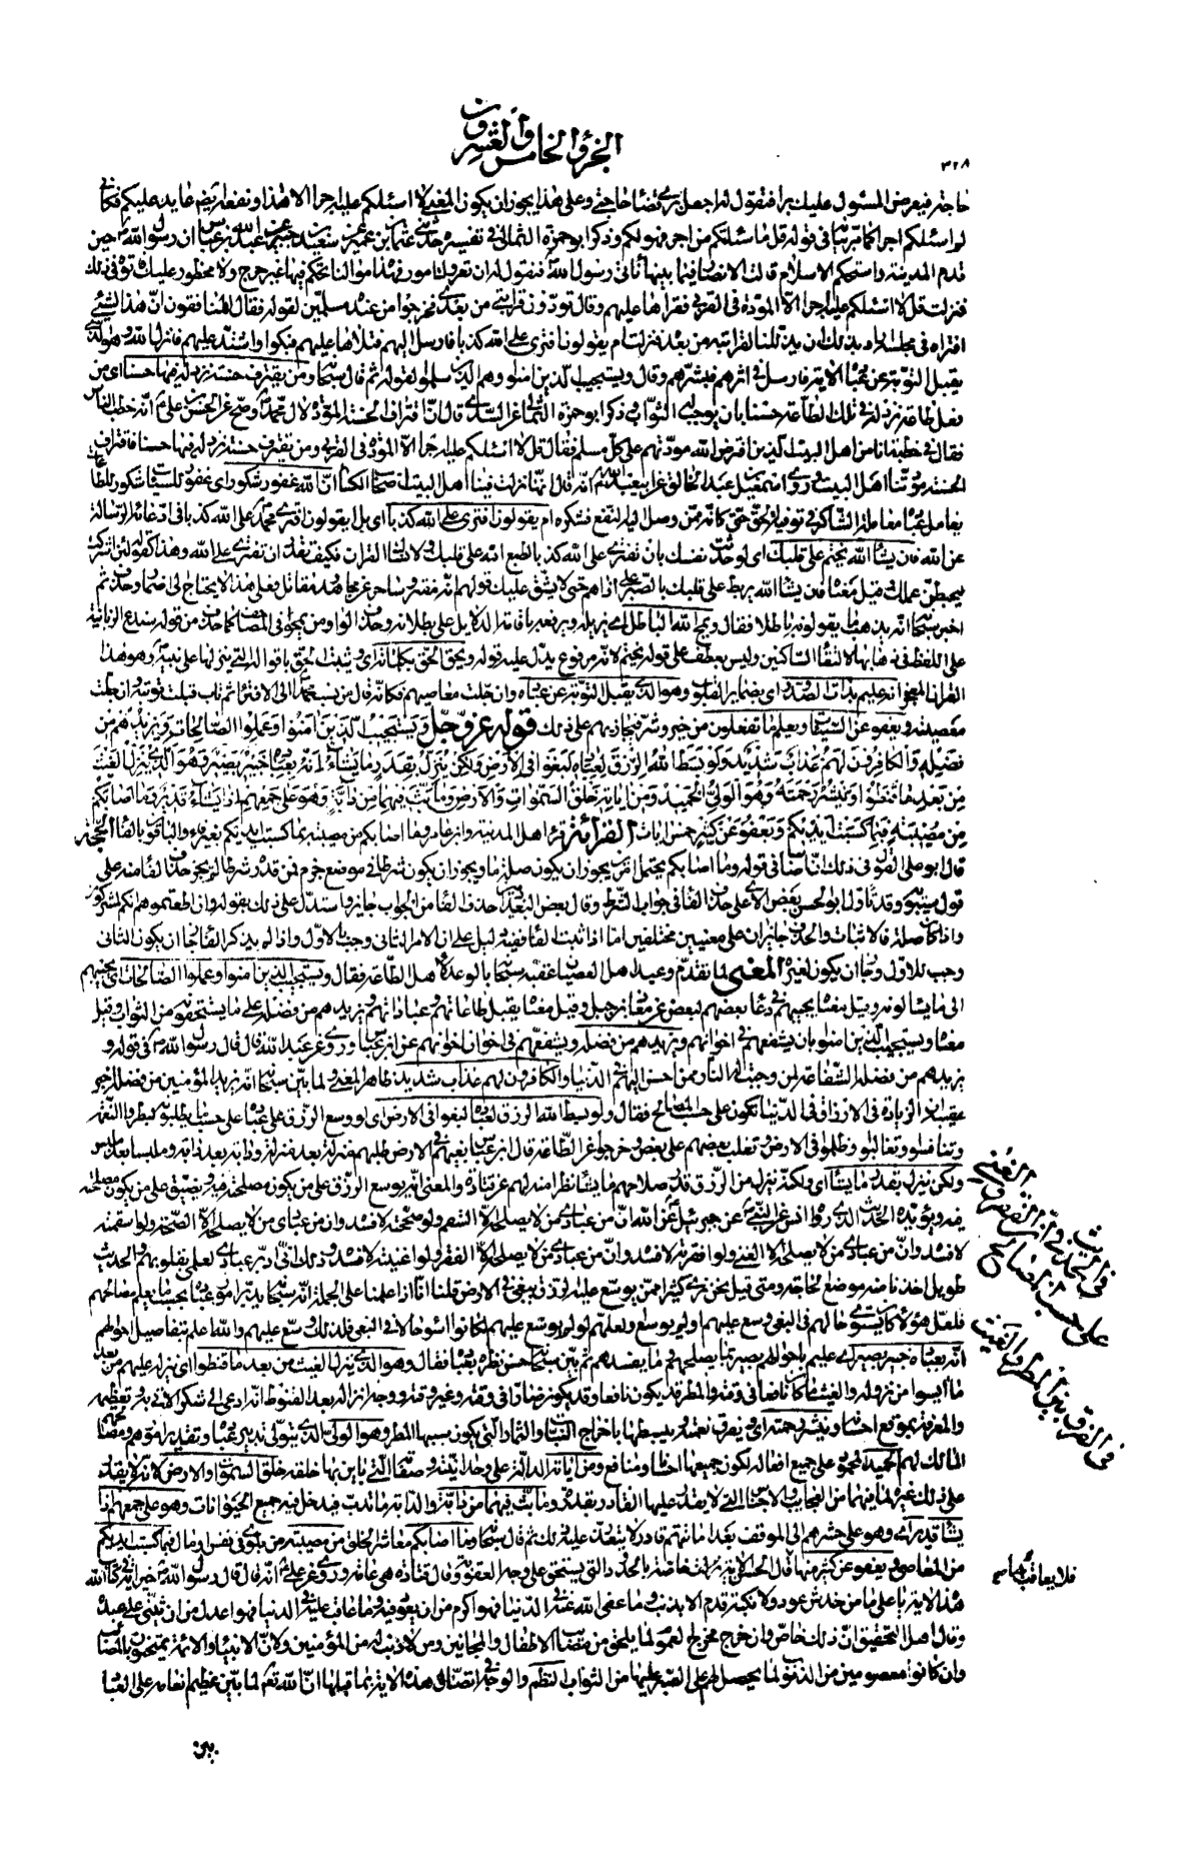 ٣٢٨
الجزؤ الخامس والعشرون
حاجة فيعرض المسئول عليك برا فتقول له اجعل بري قضاء حاجتي وعلى هذا يجوز ان يكون المعنى لا اسئلكم عليه اجرا الا هذا ونفعه ايضا عايد عليكم فكاني
لم اسئلكم اجرا كما مر بيانه في قوله قل ما سئلتكم من اجر فهو لكم وذكر ابو حمزة الثمالي في تفسيره حدثني عثمان بن عمير عن سعيد بن جبير عن عبد الله بن عباس ان رسول الله ص حين
قدم المدينة واستحكم الاسلام قالت الانصار فيما بينها ناتي رسول الله ص فنقول له ان تعروك امور فهذه اموالنا تحكم فيها غير حرج ولا محظور عليك فاتوه في ذلك
فنزلت قل لا اسئلكم عليه اجرا الا المودة في القربى فقراها عليهم وقال تودون قرابتي من بعدي فخرجوا من عنده مسلمين لقوله فقال المنافقون ان هذا لشئ
افتراه في مجلسه اراد بذلك ان يذللنا لقرابته من بعده فنزلت ام يقولون افترى على الله كذبا فارسل اليهم فتلاها عليهم فبكوا واشتد عليهم فانزل الله وهو الذي
يقبل التوبة عن عباده الاية فارسل في اثرهم فبشرهم وقال ويستجيب الذين امنوا وهم الذين سلموا لقوله ثم قال سبحانه ومن يقترف حسنة نزد له فيها حسنا اي من
فعل طاعة نزد له في تلك الطاعة حسنا بان يوجب له الثواب وذكر ابو حمزة الثمالي عن السدي قال ان اقتراف الحسنة المودة لال محمد وصح عن الحسن بن علي ع انه خطب الناس
فقال في خطبته انا من اهل البيت الذين افترض الله مودتهم على كل مسلم فقال قل لا اسئلكم عليه اجرا الا المودة في القربى ومن يقترف حسنة نزد له فيها حسنا فاقتراف
الحسنة مودتنا اهل البيت وروى اسمعيل بن عبد الخالق عن ابي عبد الله ع انه قال انها نزلت فينا اهل البيت اصحاب الكسا ان الله غفور شكور اي غفور للسيئات شكور للطاعات
يعامل عباده معاملة الشاكر في توفية الحق حتى كانه ممن وصل اليه النفع فشكره ام يقولون افترى على الله كذبا اي بل ايقولون افترى محمد على الله كذبا في ادعائه الرسالة
عن الله فان يشا الله يختم على قلبك اي لو حدثت نفسك بان تفتري على الله كذبا لطبع الله على قلبك ولانساك القران فكيف تقدر ان تفتري على الله وهذا كقوله لئن اشركت
ليحبطن عملك وقيل معناه فان يشا الله يربط على قلبك بالصبر على اذاهم حتى لا يشق عليك قولهم انه مفتر وساحر عن مجاهد ومقاتل فعلى هذا لا يحتاج الى اضمار وحذف ثم
اخبر سبحانه انه يذهب ما يقولونه باطلا فقال ويمح الله الباطل اي يزيله ويرفعه باقامة الدلايل على بطلانه وحذف الواو من يمحو في المصاحف كما حذف من قوله سندع الزبانية
على اللفظ في ذهابها لالتقاء الساكنين وليس بعطف على قوله يختم لانه مرفوع يدل عليه قوله ويحق الحق بكلماته اي ويثبت الحق باقواله التي ينزلها على نبيه وهو هذا
القران المعجز انه عليم بذات الصدور اي بضماير القلوب وهو الذي يقبل التوبة عن عباده وان جلت معاصيهم فكانه قال من نسب محمدا الى الافترا ثم تاب قبلت توبته وان جلت
معصيته ويعفو عن السيئات ويعلم ما تفعلون من خير وشر فيجازيهم على ذلك قوله عز وجل وَيَسْتَجيبُ الَّذينَ امَنُوا وَعَمِلُوا الصَّالِحاتِ وَيَزيدُهُمْ مِنْ
فَضْلِهِ وَالْكافِرُونَ لَهُمْ عَذابٌ شَديدٌ وَلَوْ بَسَطَ اللهُ الرِّزْقَ لِعِبادِهِ لَبَغَوْا فِى الْاَرْضِ وَلكِنْ يُنَزِّلُ بِقَدَرٍ ما يَشاءُ اِنَّهُ بِعِبادِهِ خَبيرٌ بَصيرٌ وَهُوَ الَّذى يُنَزِّلُ الْغَيْثَ
مِنْ بَعْدِ ما قَنَطُوا وَيَنْشُرُ رَحْمَتَهُ وَهُوَ الْوَلِىُّ الْحَميدُ وَمِنْ اياتِهِ خَلْقُ السَّمواتِ وَالْاَرْضِ وَما بَثَّ فيهِما مِنْ دابَّةٍ وَهُوَ عَلى جَمْعِهِمْ اِذا يَشاءُ قَديرٌ وَما اَصابَكُمْ
مِنْ مُصيبَةٍ فَبِما كَسَبَتْ اَيْديكُمْ وَيَعْفُو عَنْ كَثيرٍ خمس ايات القرائة قرا اهل المدينة وابن عامر وما اصابكم من مصيبة بما كسبت ايديكم بغير فاء والباقون بالفاء الحجة
قال ابو علي القول في ذلك ان ما اصابكم في قوله وما اصابكم يحتمل امرين يجوز ان يكون صلة لما ويجوز ان يكون شرطا في موضع جزم فمن قدره شرطا لم يجز حذف الفاء منه على
قول سيبويه وقد تاوله ابو الحسن بعض الاي على حذف الفاء في جواب الشرط وقال بعض البغداديين حذف الفاء من الجواب جايز واستدل على ذلك بقوله وان اطعتموهم انكم لمشركون
واذا كان صلة فالاثبات والحذف جايزان على معنيين مختلفين اما اذا ثبت الفاء ففيه دليل على ان الامر الثاني وجب بالاول واذا لم يذكر الفاء جاز ان يكون الثاني
وجب للاول وجاز ان يكون لغيره المعنى لما تقدم وعيد اهل العصيان عقبه سبحانه بالوعد لاهل الطاعة فقال ويستجيب الذين امنوا وعملوا الصالحات اي يجيبهم
الى ما يسالونه وقيل معناه يجيبهم في دعاء بعضهم لبعض عن معاذ بن جبل وقيل معناه يقبل طاعاتهم وعباداتهم ويزيدهم من فضله على ما يستحقونه من الثواب وقيل
معناه ويستجيب الذين امنوا بان يشفعهم في اخوانهم ويزيدهم من فضله ويشفعهم في اخوان اخوانهم عن ابن عباس وروي عن ابي عبد الله قال قال رسول الله ص في قوله و
يزيدهم من فضله الشفاعة لمن وجبت له النار ممن احسن اليهم في الدنيا والكافرون لهم عذاب شديد ظاهر المعنى ولما بين سبحانه انه يزيد المؤمنين من فضله اخبر
عقيبه ان الزيادة في الارزاق في الدنيا تكون على حسب المصالح فقال ولو بسط الله الرزق لعباده لبغوا في الارض اي لو وسع الرزق على عباده على حسب ما يطلبونه لبطروا النعمة
وتنافسوا وتغالبوا وظلموا في الارض وتغلب بعضهم على بعض وخرجوا عن الطاعة قال ابن عباس بغيهم في الارض طلبهم منزلة بعد منزلة ودابة بعد دابة وملبسا بعد ملبس
ولكن ينزل بقدر ما يشاء اي ولكنه ينزل من الرزق قدر صلاحهم ما يشاء نظرا منه لهم عن قتادة والمعنى انه يوسع الرزق على من يكون مصلحته فيه ويضيق على من يكون مصلحته
فيه ويؤيده الحديث الذي رواه انس عن النبي ص عن جبرئيل عن الله ان من عبادي من لا يصلحه الا السقم ولو صححته لافسده وان من عبادي من لا يصلحه الا الصحة ولو اسقمته
لافسده وان من عبادي من لا يصلحه الا الغنى ولو افقرته لافسده وان من عبادي من لا يصلحه الا الفقر ولو اغنيته لافسده وذلك اني ادبر عبادي لعلمي بقلوبهم والحديث
طويل اخذنا منه موضع الحاجة ومتى قيل نحن نرى كثيرا ممن يوسع عليه الرزق يبغي في الارض قلنا انا اذا علمنا على الجملة انه سبحانه يدبر امور عباده بحسب ما يعلم من مصالحهم
فلعل هؤلاء كان يستوي حالهم في البغي وسع عليهم او لم يوسع ولعلهم لو لم يوسع عليهم لكانوا اسوء حالا في البغي فلذلك وسع عليهم والله اعلم بتفاصيل احوالهم
انه بعباده خبير بصير اي عليم باحوالهم بصير بما يصلحهم وما يفسدهم ثم بين سبحانه حسن نظره بعباده فقال وهو الذي ينزل الغيث من بعد ما قنطوا اي ينزله عليهم من بعد
ما ايسوا من نزوله والغيث ما كان نافعا في وقته والمطر قد يكون نافعا وقد يكون ضارا في وقته وغير وقته ووجه انزاله بعد القنوط انه ادعى الى شكر الاتي به وتعظيمه
والمعرفة بموقع احسانه وينشر رحمته اي ويفرق نعمته ويبسطها باخراج النبات والثمار التي يكون سببها المطر وهو الولي الذي يتولى تدبير عباده وتقدير امورهم ومصالحهم
المالك لهم الحميد المحمود على جميع افعاله لكون جميعها احسانا ومنافع ومن اياته الدالة على وحدانيته وصفاته التي باين بها خلقه خلق السموات والارض لانه لا يقدر
على ذلك غيره لما فيهما من العجايب والاجناس التي لا يقدر عليها القادر بقدرة وما بث فيهما من دابة والدابة ما تدب فيدخل فيه جميع الحيوانات وهو على جمعهم اذا
يشاء قدير اي وهو على حشرهم الى الموقف بعد اماتتهم قادر لا يتعذر عليه ذلك ثم قال سبحانه وما اصابكم معاشر الخلق من مصيبة من بلوى في نفس او مال فبما كسبت ايديكم
من المعاصي ويعفو عن كثير منها قال الحسن الاية خاصة بالحدود التي تستحق على وجه العقوبة وقال قتادة هي عامة وروي عن علي ع انه قال قال رسول الله ص خير اية في كتاب الله
هذه الاية يا علي ما من خدش عود ولا نكبة قدم الا بذنب وما عفى الله عنه في الدنيا فهو اكرم من ان يعود فيه وما عاقب عليه في الدنيا فهو اعدل من ان يثني على عبده
وقال اهل التحقيق ان ذلك خاص وان خرج مخرج العموم لما يلحق من مصائب الاطفال والمجانين ومن لا ذنب له من المؤمنين ولان الانبياء والائمة يمتحنون بالمصائب
وان كانوا معصومين من الذنوب لما يحصل لهم على الصبر عليها من الثواب النظم والوجه في اتصال هذه الاية بما قبلها ان الله تعالى لما بين عظيم انعامه على العباد
على حسب المصالح
في الفرق بين المطر والغيث
فلا يعاقب بها
بين